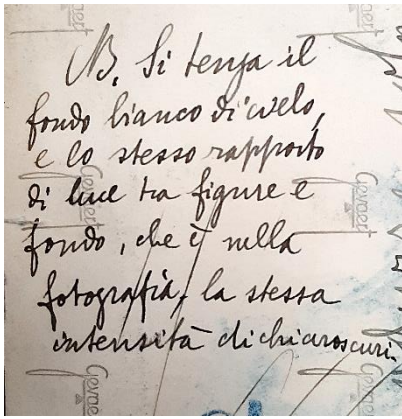 NB. Si tenga il
fondo bianco di cielo,
e lo stesso rapporto
di luce tra figure e
fondo, che è nella
fotografia, la stessa
intensità di chiaroscuri.
Gevaert
Gevaert
Gevaert